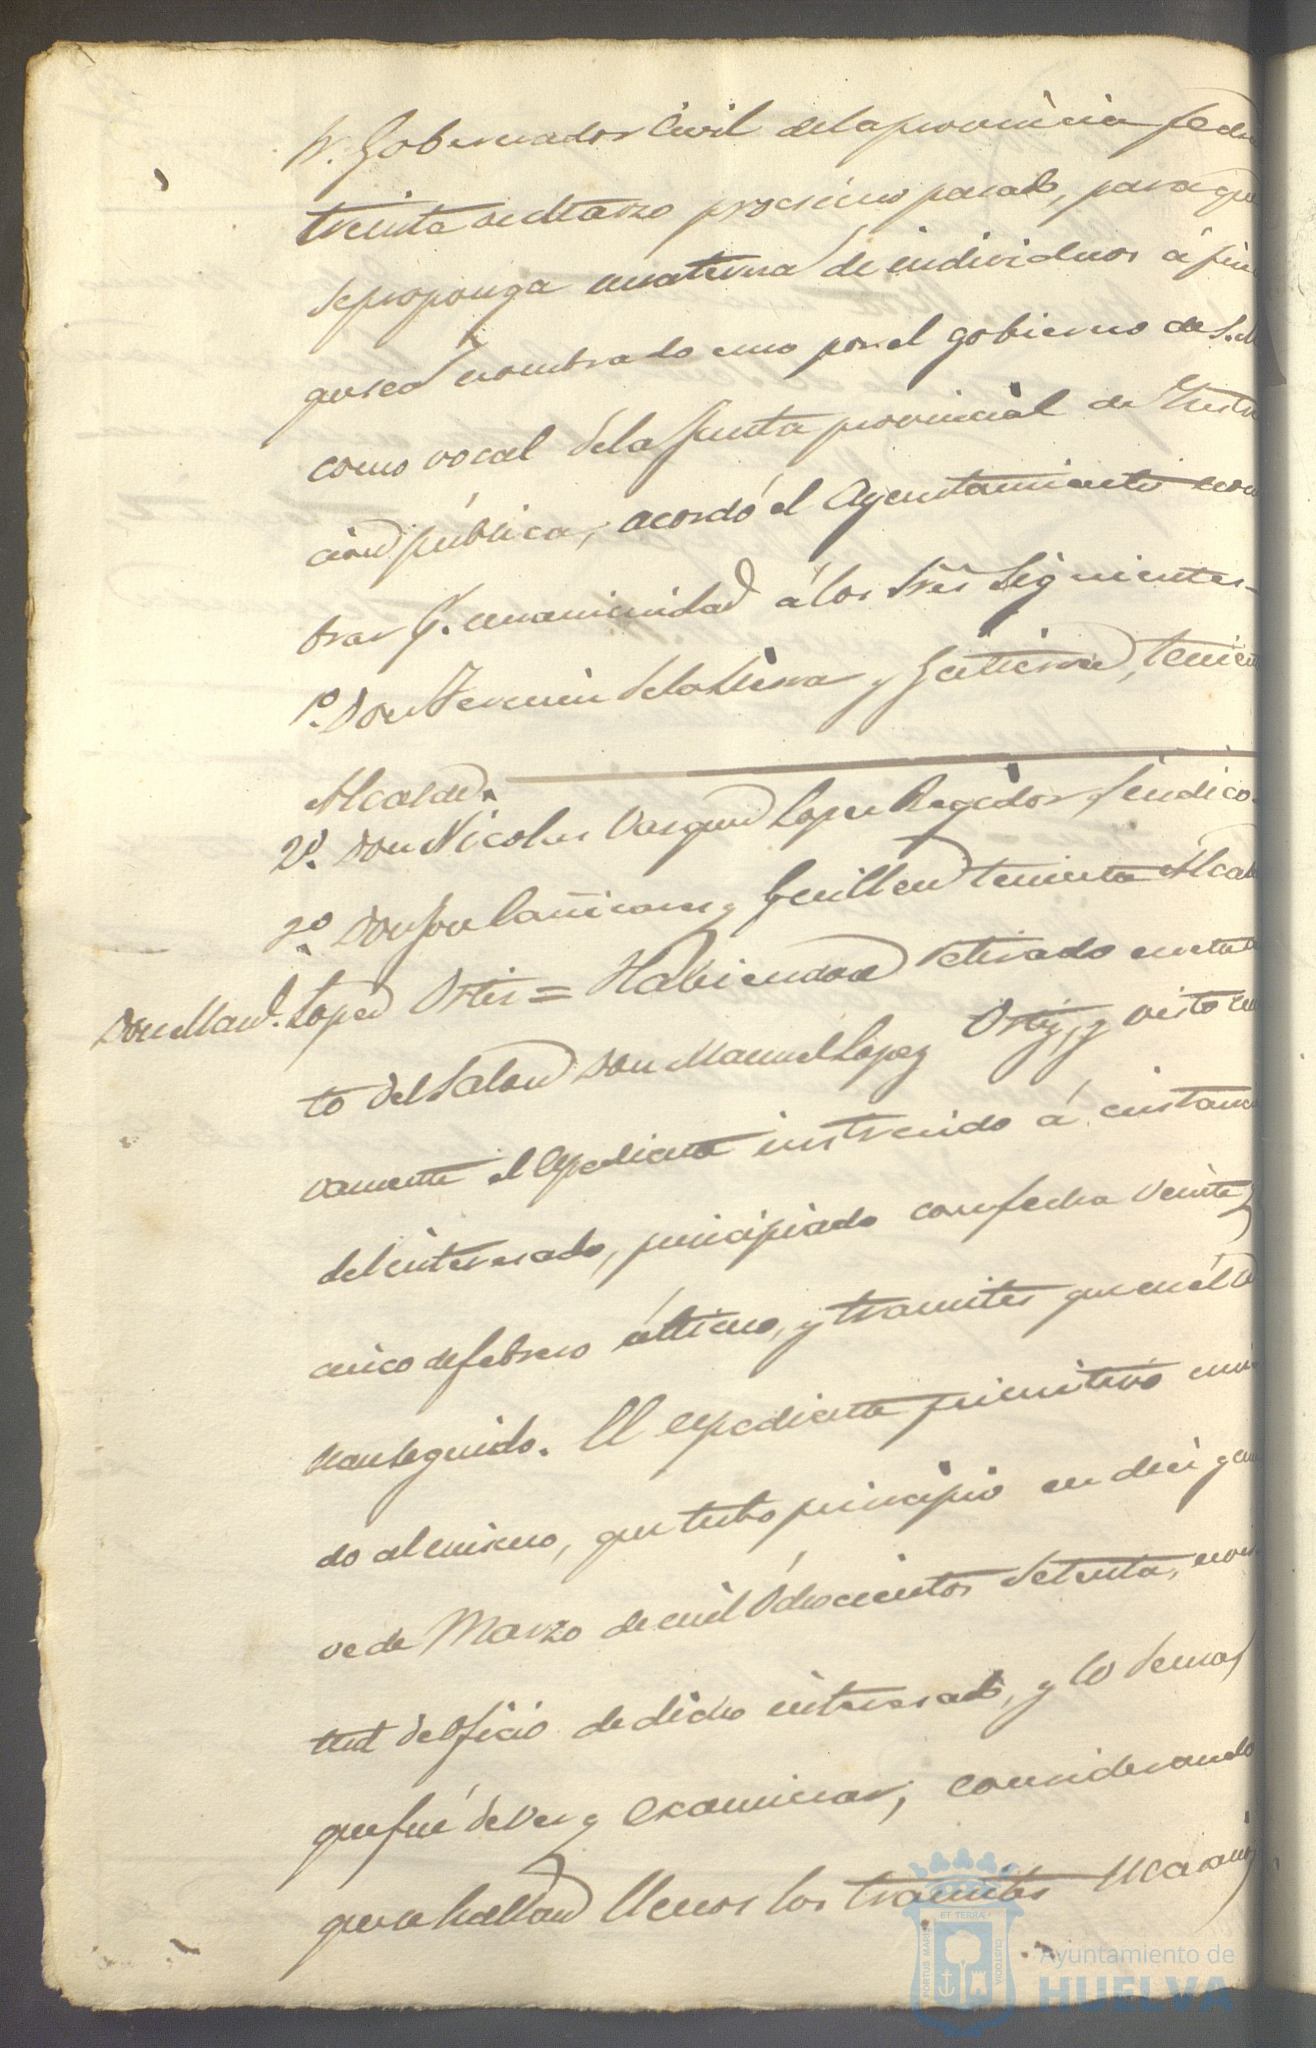 Sr. Gobernador Civil de la provincia fecha
treinta de Marzo procsimo pasado, para que
se proponga una terna de individuos á fin
que sea nombrado uno por el gobierno de S. M.
como vocal de la Junta provincial de Instruc
cion pública, acordó el Ayuntamiento nom
brar p.r unanimidad á los Sres siguientes=
1º. Don Fermin de la Sierra y Gutierrez, teniente
Alcalde.
2º. Don Nicolas Vazquez Lopez Regidor Sindico.
3º. Don José Cañizares y Guillen teniente Alcalde
Don Man.l Lopez Ortiz = Habiendose retirado en este ac
to del Salon Don Manuel Lopez Ortiz, y visto nue
vamente el Espediente instruido á instancia
del interesado, principiado con fecha veinte y
cinco de febrero último, y tramites que en él se
han seguido. El espediente primitivo uni
do al mismo, que tubo principio en diez y nue
ve de Marzo de mil ochocientos setenta,
del oficio de dicho interesado, y lo demas
que fué de ver y examinar; considerando
que se hallan llenos los tramites
Ayuntamiento de
HUELVA
PORTUS MARIS
ET TERRAE
CUSTODIA